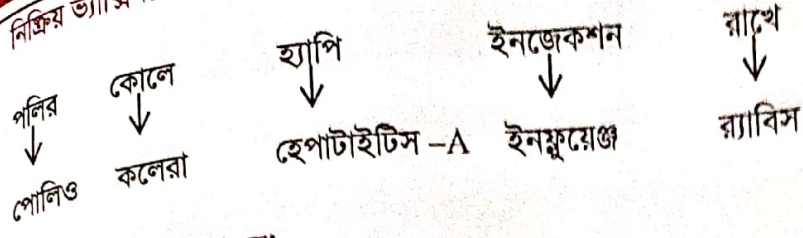 নিষ্ক্রিয়
পলির কোলে হ্যাপি ইনজেকশন রাখে
↓ ↓ ↓ ↓ ↓
পোলিও কলেরা হেপাটাইটিস –A ইনফ্লুয়েঞ্জা র‍্যাবিস